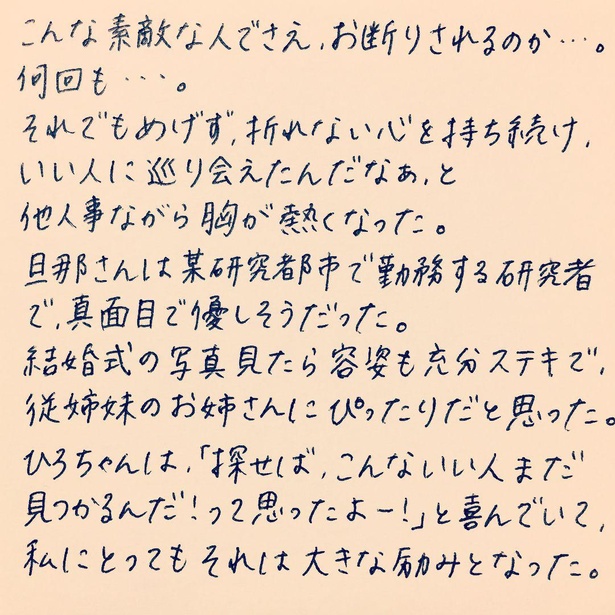 こんな素敵な人でさえ、お断りされるのか…。
何回も…。
それでもめげず、折れない心を持ち続け、
いい人に巡り会えたんだなぁ、と
他人事ながら胸が熱くなった。
旦那さんは某研究都市で勤務する研究者
で、真面目で優しそうだった。
結婚式の写真見たら容姿も充分ステキで、
従姉妹のお姉さんにぴったりだと思った。
ひろちゃんは、「探せば、こんないい人まだ
見つかるんだ!って思ったよー!」と喜んでいて、
私にとってもそれは大きな励みとなった。